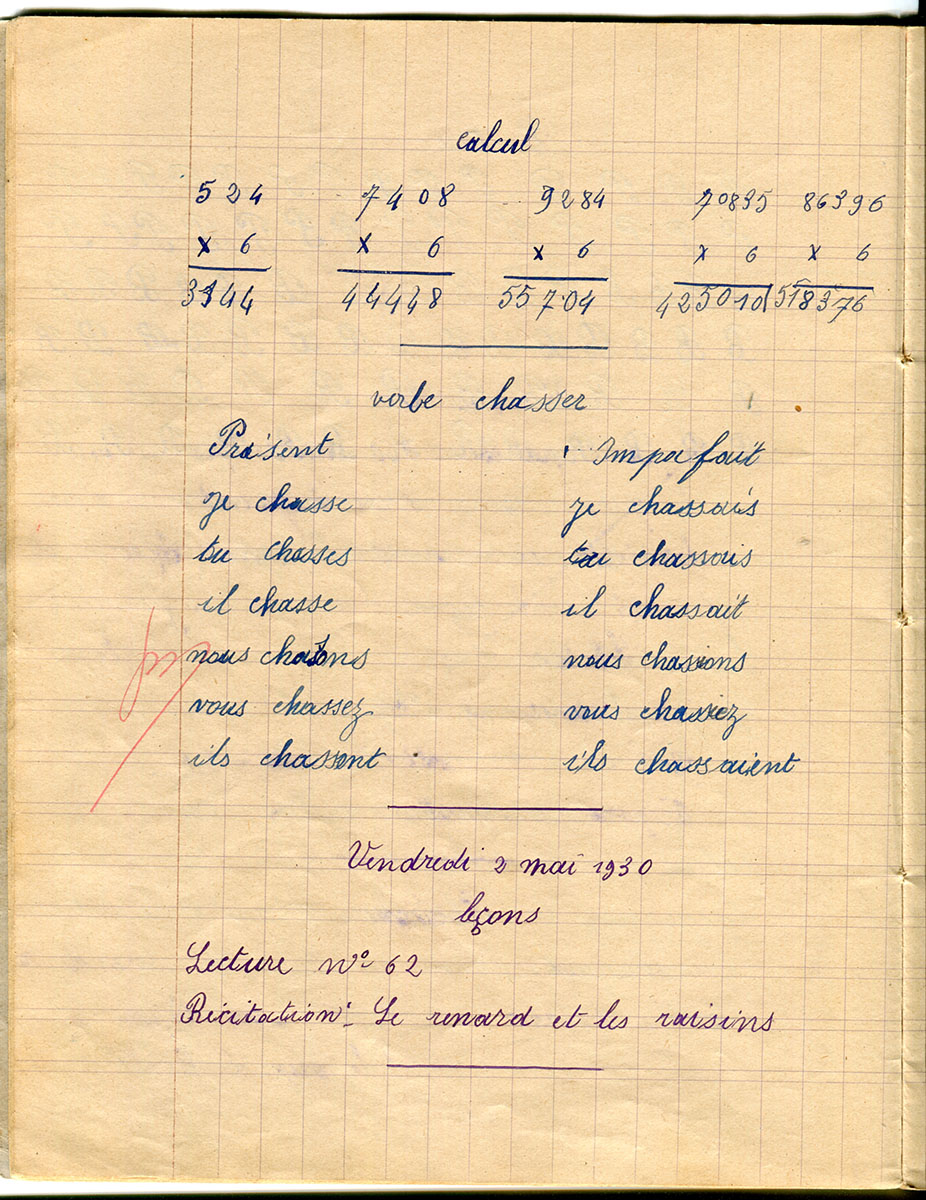 calcul
524 7408 9284 70835 86396
x 6 x 6 x 6 x 6 x 6
3144 44448 55704 425010 518376
verbe chasser
Présent Impafait
je chasse je chassais
tu chasses tu chassais
il chasse il chassait
nous chassons nous chassions
vous chassez vous chassiez
ils chassent ils chassaient
Vendredi 2 mai 1930
leçons
Lecture n° 62
Récitation - Le renard et les raisins